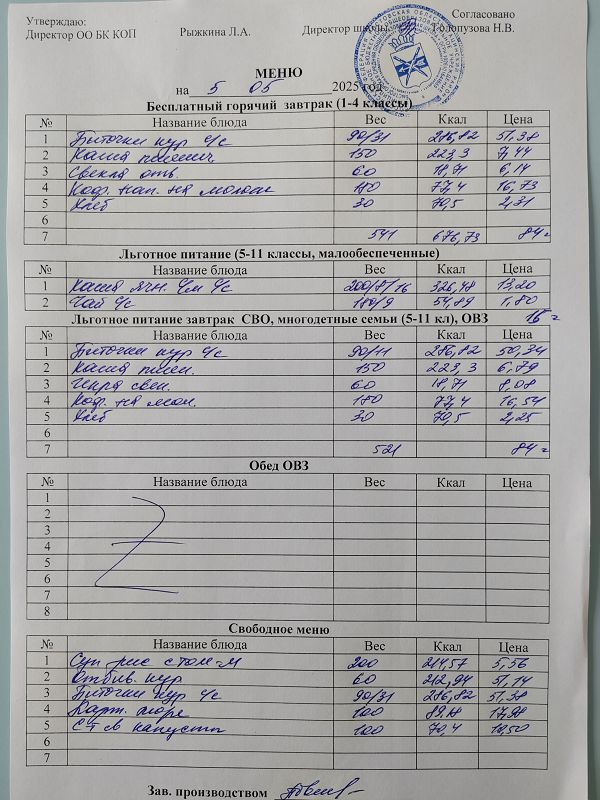 Утверждаю: Согласовано
Директор ОО БК КОП Рыжкина Л.А. Директор школы Голопузова Н.В.
МЕНЮ
на 5 05 2025 год
Бесплатный горячий завтрак (1-4 классы)
№ Название блюда Вес Ккал Цена
1 Биточки кур с/с 90/31 286,82 51,38
2 Каша пшенич 150 223,3 7,44
3 Свекла отв 60 18,71 6,14
4 Коф. нап. на молоке 180 77,4 16,73
5 Хлеб 30 70,5 2,31
6
7 541 676,73 84=
Льготное питание (5-11 классы, малообеспеченные)
№ Название блюда Вес Ккал Цена
1 Каша ячн. с/м с/с 326,48 13,20
2 Чай с/с 180/9 54,89 1,80
Льготное питание завтрак СВО, многодетные семьи (5-11 кл), ОВЗ 15=
№ Название блюда Вес Ккал Цена
1 Биточки кур с/с 90/11 286,82 50,34
2 Каша пшен. 150 223,3 6,79
3 Икра свек. 60 18,71 8,08
4 Коф. на мол. 180 77,4 16,54
5 Хлеб 30 70,5 2,25
6
7 521 84=
Обед ОВЗ
№ Название блюда Вес Ккал Цена
1
2
3
4
5
6
7
8
Свободное меню
№ Название блюда Вес Ккал Цена
1 Суп рис с том-м 200 214,57 5,56
2 Отбив. кур 60 212,94 51,14
3 Биточки кур с/с 90/31 286,82 51,38
4 Карт. пюре 100 89,18 17,98
5 капусты 100 70,4 10,50
6
7
Зав. производством